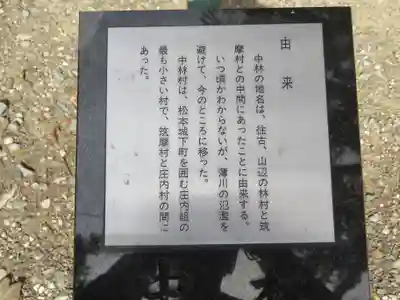 由来
中林の地名は、往古、山辺の林村と筑
摩村との中間にあったことに由来する。
いつ頃かわからないが、薄川の氾濫を
避けて、今のところに移った。
中林村は、松本城下町を囲む庄内組の
最も小さい村で、筑摩村と庄内村の間に
あった。